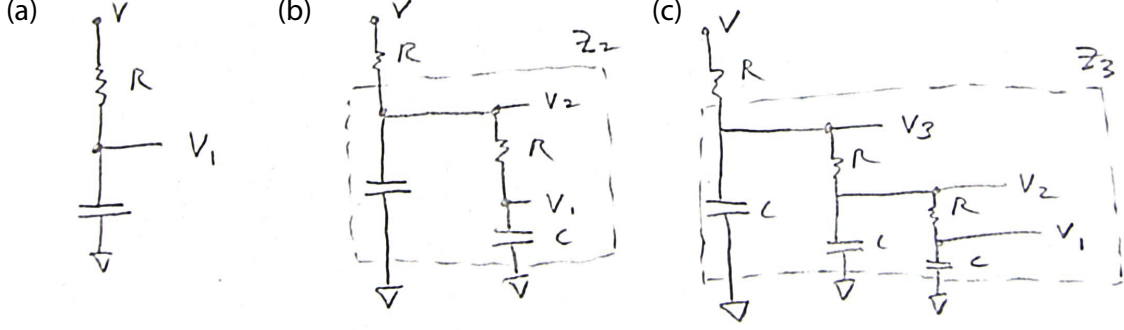 (a)
V
R
V1
(b)
V
R
Z2
V2
R
V1
C
(c)
V
R
Z3
V3
R
V2
C
C
R
V1
C